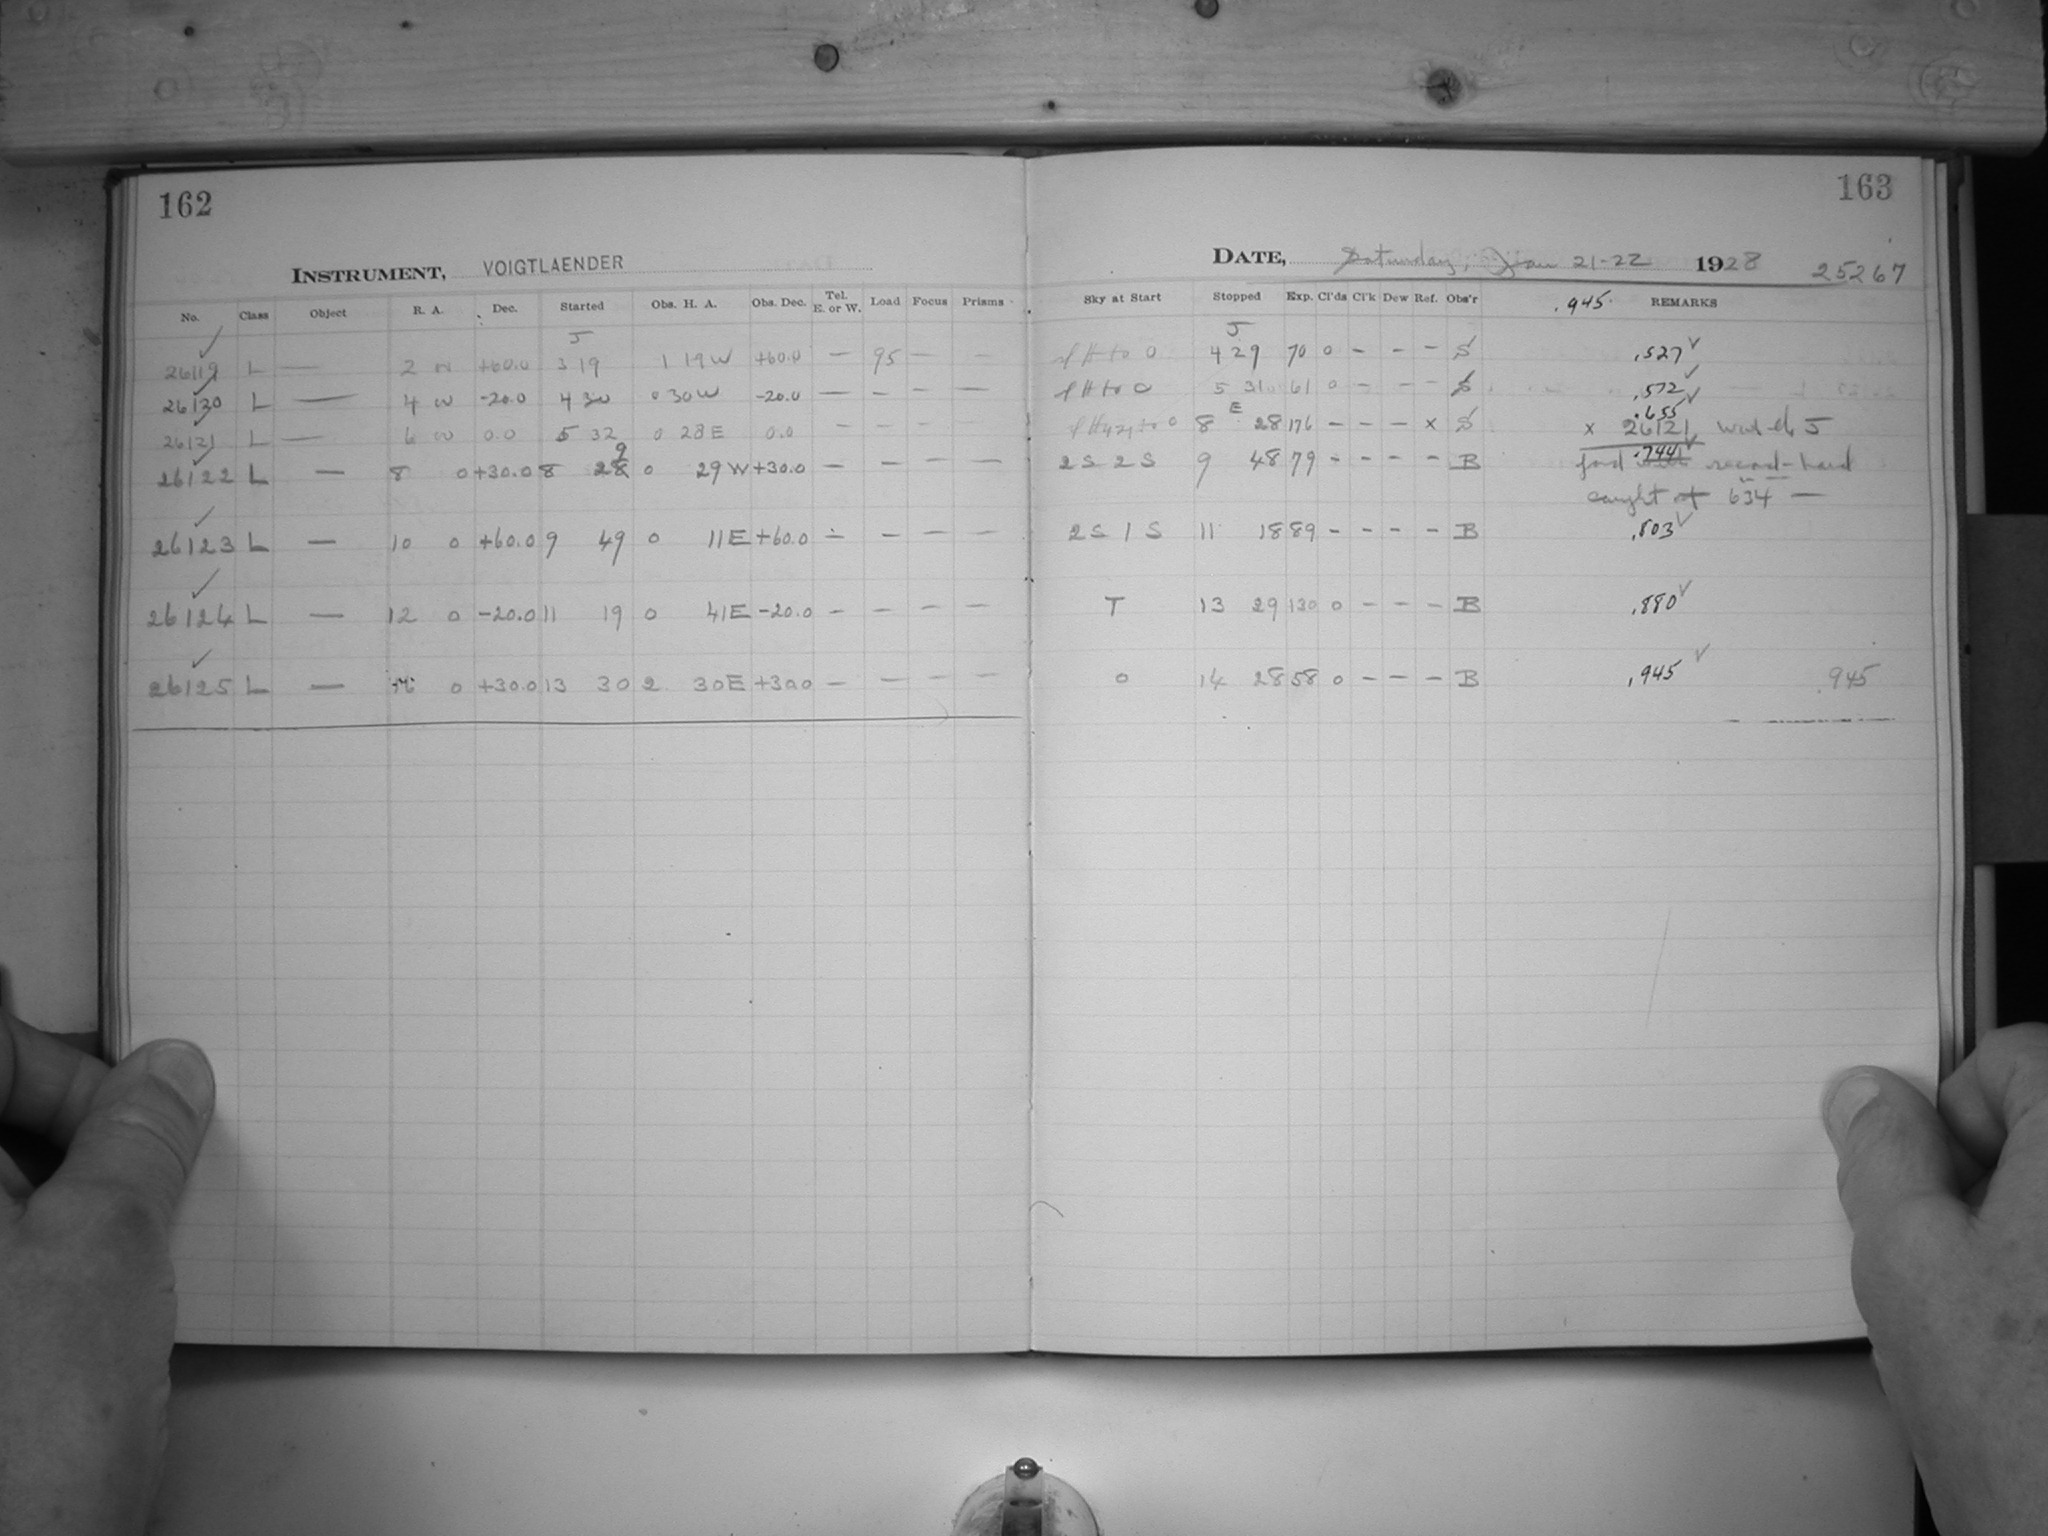 162
163
INSTRUMENT, VOIGTLAENDER
DATE, Saturday, Jan 21-22 1928 25267
No. Class Object R. A. Dec. Started Obs. H. A. Obs. Dec. Tel. E. or W. Load Focus Prisms
Sky at Start Stopped Exp. Cl'ds Cl'k Dew Ref. Obs'r .945 REMARKS
J J
26119 L — 2 +60.0 3 19 1 19W +60.0 — 95 — — 4 29 70 0 – – – S .527 ✓
26120 L — 4 -20.0 4 30 0 30W -20.0 — — — — 5 31 61 0 – – – S .572 ✓
26121 L — 6 0.0 5 32 0 28E 0.0 – – – – 8 E 28 176 – – – × S .655 ✓
× 26121 J
26122 L — 8 0 +30.0 8 29 0 29W +30.0 – – – — 2S 2S 9 48 79 – – – – B .744 ✓
record-hand
caught at 634 —
26123 L — 10 0 +60.0 9 49 0 11E +60.0 – – – – 2S 1S 11 18 89 – – – – B .803 ✓
26124 L — 12 0 -20.0 11 19 0 41E -20.0 – – – – T 13 29 130 0 – – – B .880 ✓
26125 L — 14 0 +30.0 13 30 2 30E +30.0 – – – – 0 14 28 58 0 – – – B .945 ✓ .945